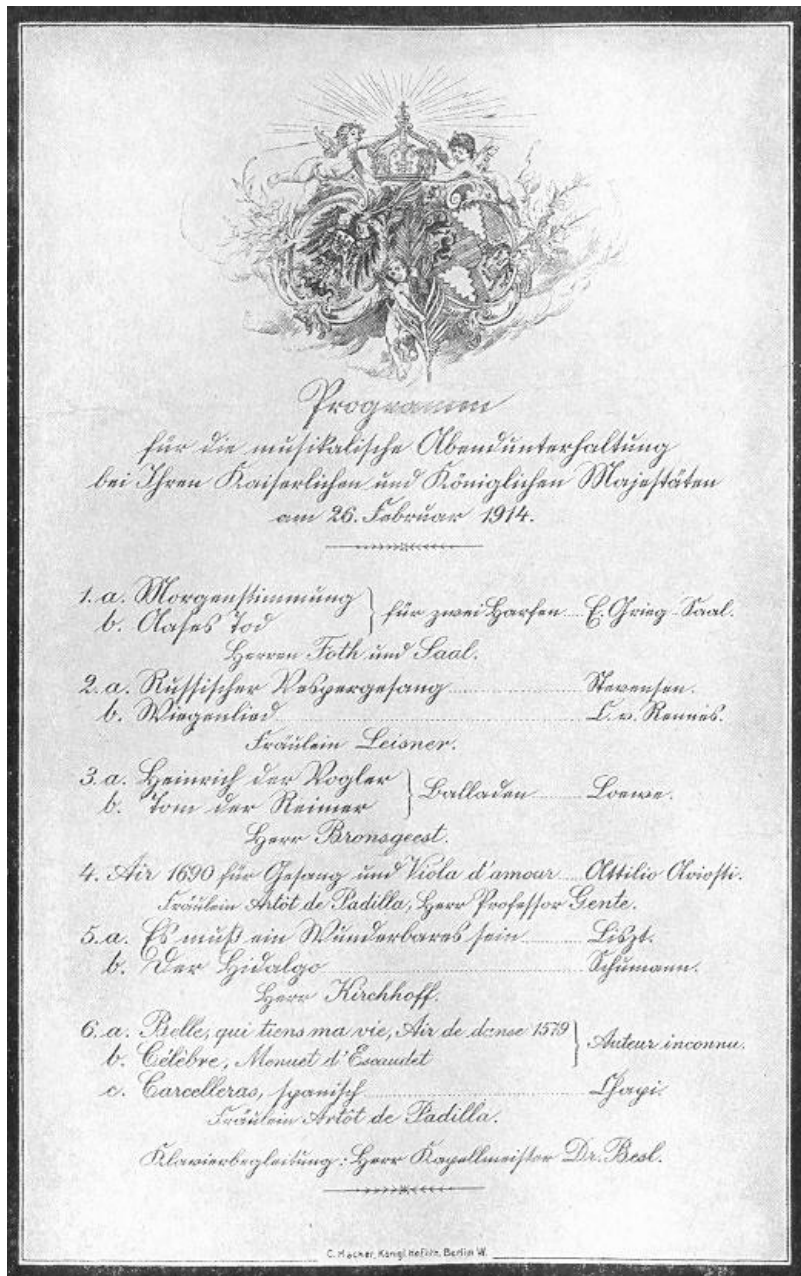 Programm
für die musikalische Abendunterhaltung
bei Ihren Kaiserlichen und Königlichen Majestäten
am 26. Februar 1914.
1. a. Morgenstimmung
b. Aases Tod } für zwei Harfen .... E. Grieg-Saal.
Herren Foth und Saal.
2. a. Russischer Vespergesang .... Stevenson.
b. Wiegenlied .... C. v. Rennes.
Fräulein Leisner.
3. a. Heinrich der Vogler
b. Tom der Reimer } Balladen .... Loewe.
Herr Bronsgeest.
4. Air 1690 für Gesang und Viola d'amour .... Attilio Ariosti.
Fräulein Artôt de Padilla, Herr Professor Gente.
5. a. Es muß ein Wunderbares sein .... Liszt.
b. Der Hidalgo .... Schumann.
Herr Kirchhoff.
6. a. Belle, qui tiens ma vie, Air de danse 1579
b. Célèbre, Menuet d'Exaudet } Auteur inconnu.
c. Carcelleras, spanisch .... Chapi.
Fräulein Artôt de Padilla.
Klavierbegleitung: Herr Kapellmeister Dr. Besl.
Königl. Hoflith. Berlin W.